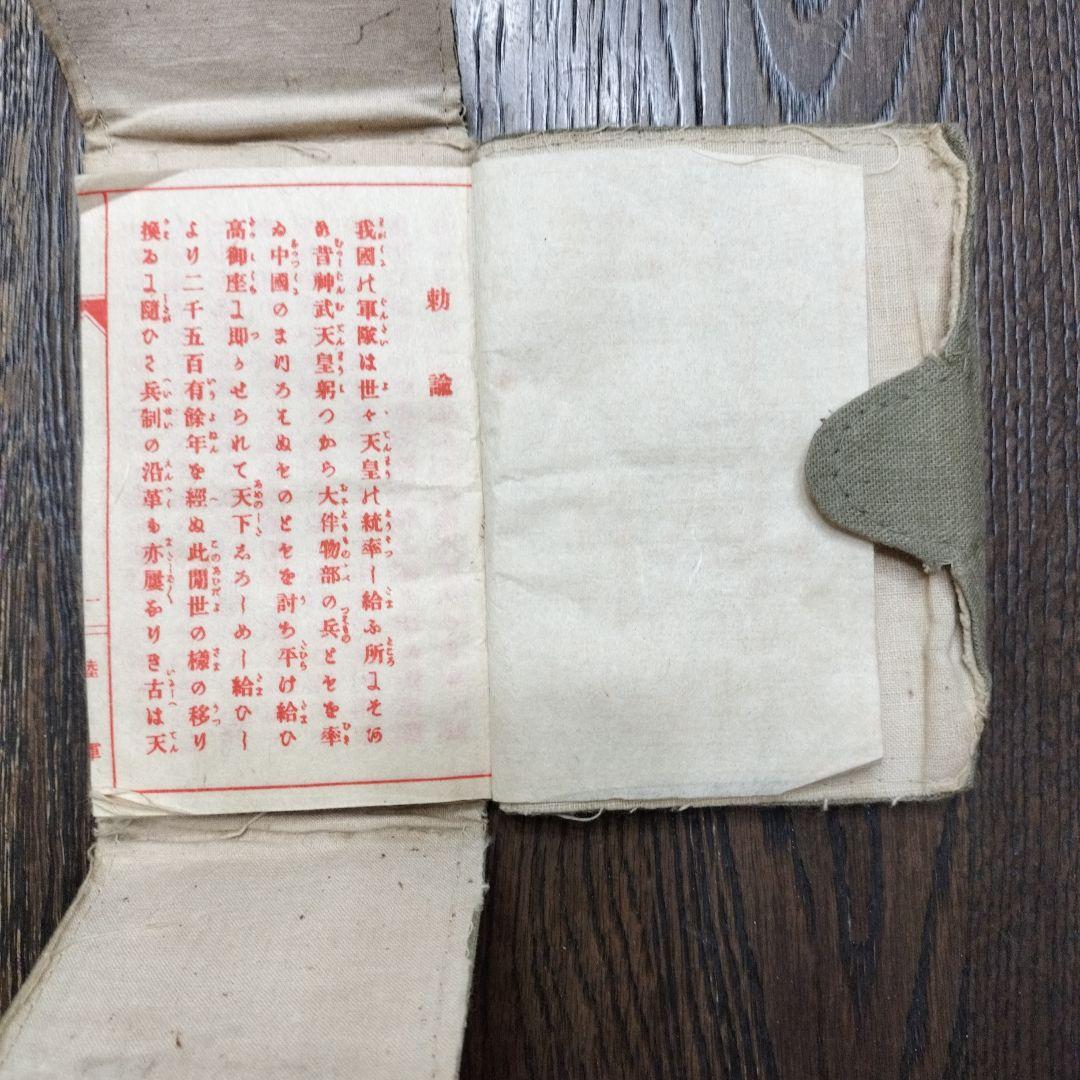 勅諭
我國の軍隊は世々天皇の統率し給ふ所にそあ
る昔神武天皇躬つから大伴物部の兵ともを率
ゐ中國のまつろはぬものともを討ち平け給ひ
高御座に即かせられて天下しろしめし給ひし
より二千五百有餘年を經ぬ此閒世の樣の移り
換るに隨ひて兵制の沿革も亦屢なりき古は天
一
陸軍